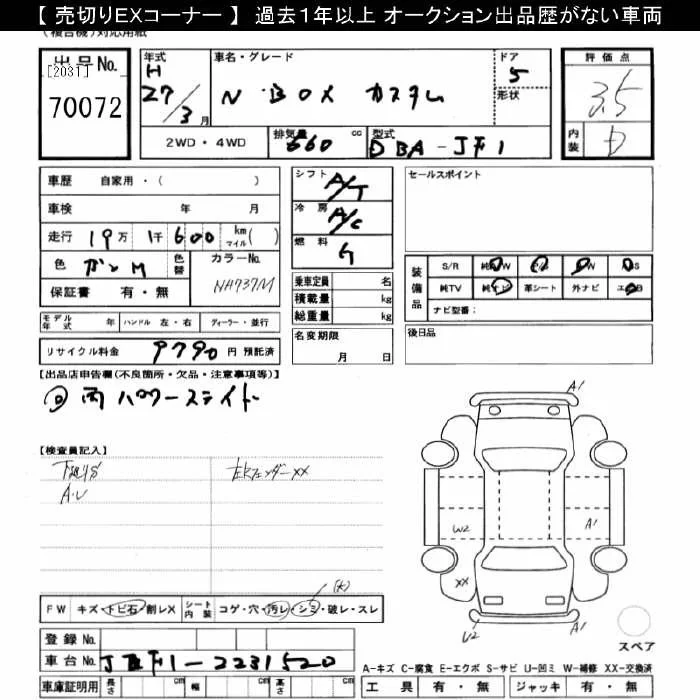 【 売切りEXコーナー 】 過去１年以上 オークション出品歴がない車両
(複合機)対応用紙
出品No.
[2031]
70072
年式 H 27/3 月
車名・グレード
N BOX カスタム
ドア 5
形状
評価点
3.5
内装 D
2WD・4WD
排気量 660 cc
型式 DBA-JF1
車歴 自家用・( )
車検 年 月
走行 19万 1千600 km マイル( )
色 ガンM
色替
カラーNo. NH737M
保証書 有・無
シフト A/T
冷房 A/C
燃料 G
乗車定員 名
積載量 kg
総重量 kg
セールスポイント
装備品
S/R
純TV 革シート 外ナビ
ナビ型番：
モデル年式 年 ハンドル 左・右 ディーラー・並行
名変期限 月 日
後日品
リサイクル料金 9790 円 預託済
【出品店申告欄(不良箇所・欠品・注意事項等)】
両パワースライド
【検査員記入】
下廻りS
A・U
左Rフェンダーxx
A1
W2
A1
XX
U2
A1
スペア
FW キズ・トビ石・割レX
シート内装 コゲ・穴・汚レ・シミ・破レ・スレ
登録No.
車台No. JF1-2231520
車庫証明用 長さ cm 幅 cm 高さ cm
A-キズ C-腐食 E-エクボ S-サビ U-凹ミ W-補修 XX-交換済
工具 有・無 ジャッキ 有・無